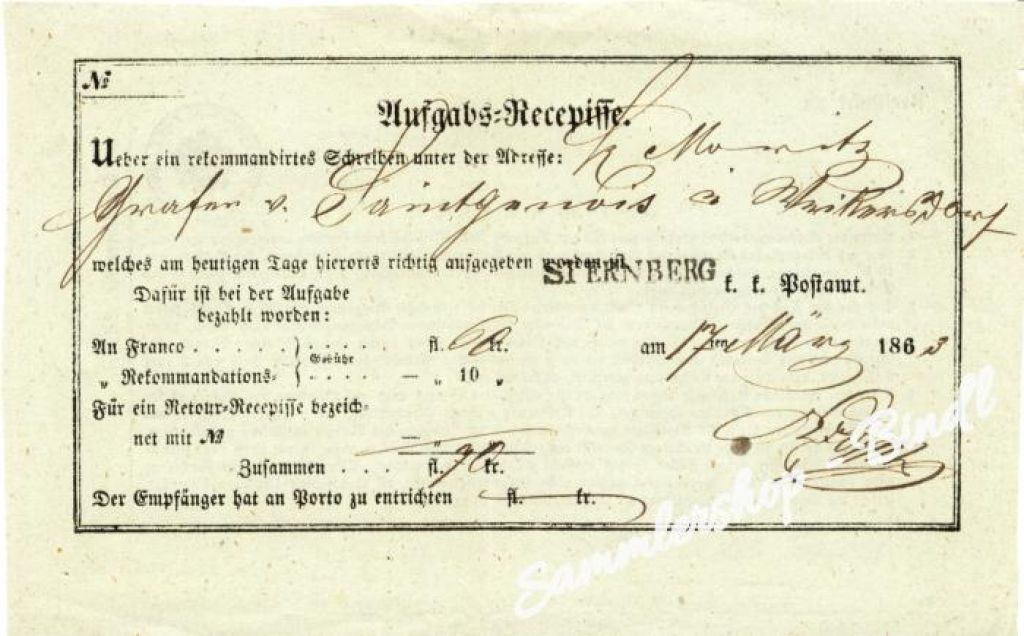 №
Aufgabs-Recepisse.
Ueber ein rekommandirtes Schreiben unter der Adresse: H Moritz
Grafen v. Saintgenois in Weikersdorf
welches am heutigen Tage hierorts richtig aufgegeben worden ist
STERNBERG k. k. Postamt.
Dafür ist bei der Aufgabe
bezahlt worden:
An Franco . . . . . fl. kr.
Gebühr
„ Rekommandations- . . . . — „ 10 „
am 17ten März 1863
Für ein Retour-Recepisse bezeich-
net mit № — „
Zusammen . . . fl. kr.
Der Empfänger hat an Porto zu entrichten fl. kr.
Sammlershop - Bindl